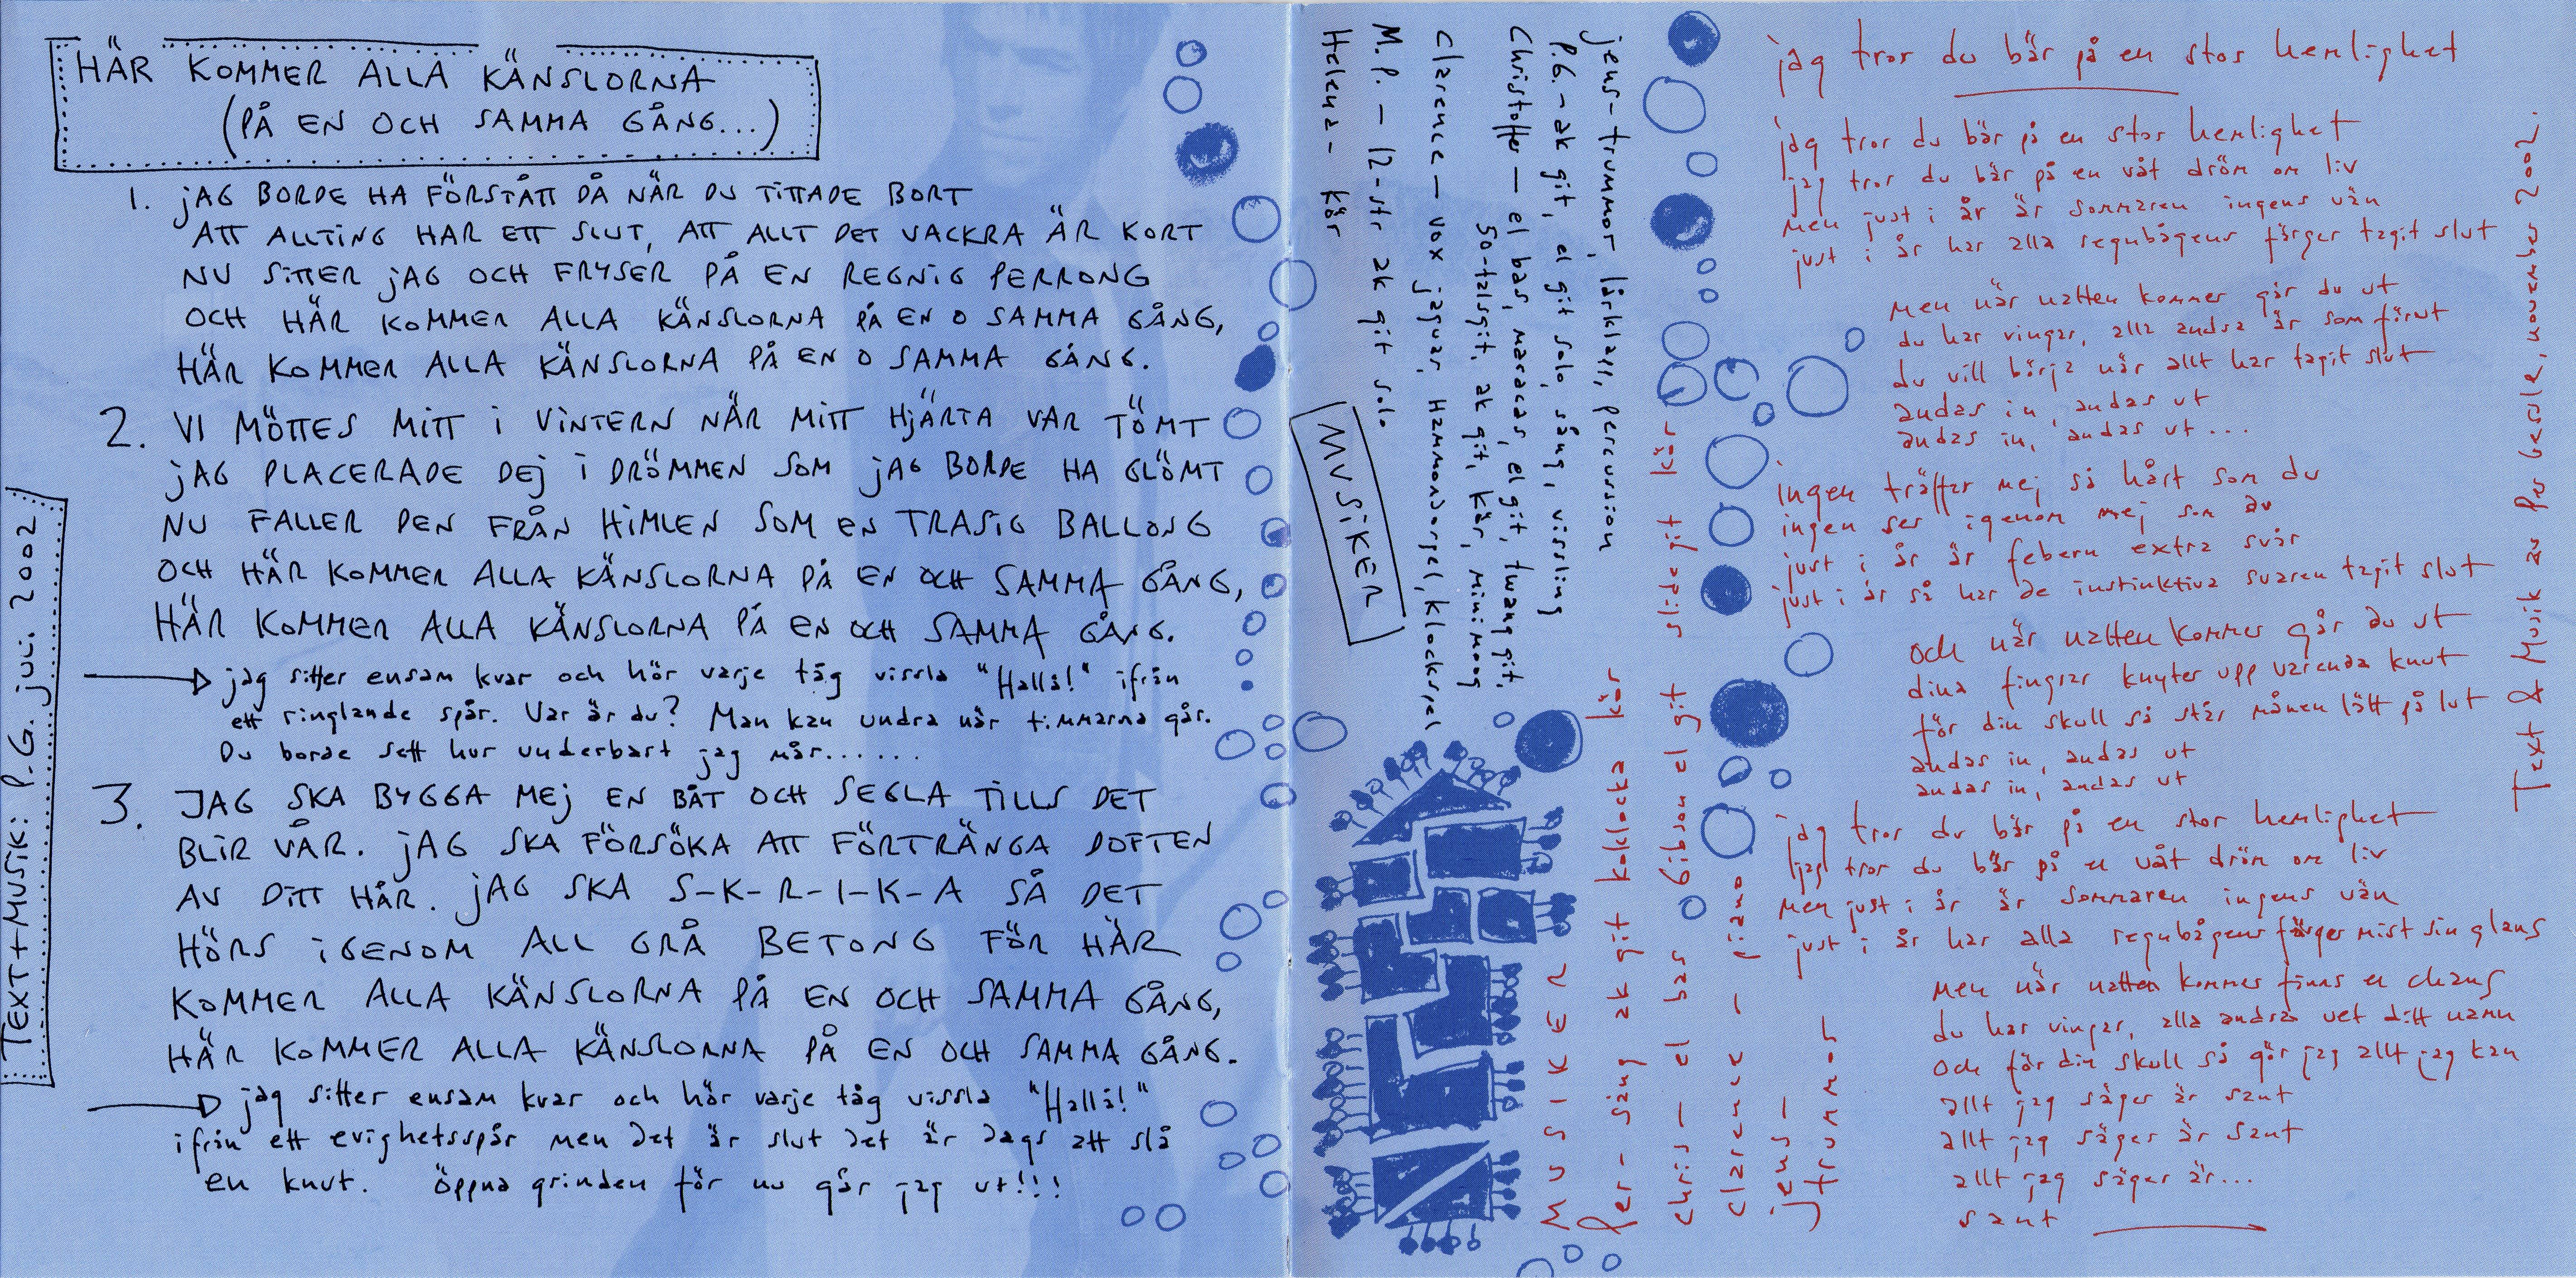 HÄR KOMMER ALLA KÄNSLORNA
(PÅ EN OCH SAMMA GÅNG...)
1. jAG BORDE HA FÖRSTÅTT DÅ NÄR DU TITTADE BORT
ATT ALLTING HAR ETT SLUT, ATT ALLT DET VACKRA ÄR KORT
NU SITTER jAG OCH FRYSER PÅ EN REGNIG PERRONG
OCH HÄR KOMMER ALLA KÄNSLORNA PÅ EN O SAMMA GÅNG,
HÄR KOMMER ALLA KÄNSLORNA PÅ EN O SAMMA GÅNG.
2. VI MÖTTES MITT I VINTERN NÄR MITT HJÄRTA VAR TÖMT
jAG PLACERADE DEJ I DRÖMMEN SOM jAG BORDE HA GLÖMT
NU FALLER DEN FRÅN HIMLEN SOM EN TRASIG BALLONG
OCH HÄR KOMMER ALLA KÄNSLORNA PÅ EN OCH SAMMA GÅNG,
HÄR KOMMER ALLA KÄNSLORNA PÅ EN OCH SAMMA GÅNG.
jag sitter ensam kvar och hör varje tåg vissla "Hallå!" ifrån
ett ringlande spår. Var är du? Man kan undra när timmarna går.
Du borde sett hur underbart jag mår......
3. JAG SKA BYGGA MEJ EN BÅT OCH SEGLA TILLS DET
BLIR VÅR. jAG SKA FÖRSÖKA ATT FÖRTRÄNGA DOFTEN
AV DITT HÅR. jAG SKA S-K-R-I-K-A SÅ DET
HÖRS IGENOM ALL GRÅ BETONG FÖR HÄR
KOMMER ALLA KÄNSLORNA PÅ EN OCH SAMMA GÅNG,
HÄR KOMMER ALLA KÄNSLORNA PÅ EN OCH SAMMA GÅNG.
jag sitter ensam kvar och hör varje tåg vissla "Hallå!"
ifrån ett evighetsspår men det är slut det är dags att slå
en knut. Öppna grinden för nu går jag ut!!!
TEXT+MUSIK: P.G. juli 2002
MUSIKER
jens - trummor, lårklass, percussion
P.G. - ak git, el git solo, sång, vissling
Christoffer - el bas, maracas, el git, twang git,
50-talsgit, ak git, kör, minimoog
Clarence - vox jaguar, Hammondorgel, klockspel
M.P. - 12-str ak git solo
Helena - kör
jag tror du bär på en stor hemlighet
jag tror du bär på en stor hemlighet
jag tror du bär på en våt dröm om liv
men just i år är sommaren ingens vän
just i år har alla regnbågens färger tagit slut
men när natten kommer går du ut
du har vingar, alla andra är som förut
du vill börja när allt har tagit slut
andas in, andas ut
andas in, andas ut...
ingen träffar mej så hårt som du
ingen ser igenom mej som du
just i år är febern extra svår
just i år så har de instinktiva svaren tagit slut
och när natten kommer går du ut
dina fingrar knyter upp varenda knut
för din skull så står månen lätt på lut
andas in, andas ut
andas in, andas ut
jag tror du bär på en stor hemlighet
jag tror du bär på en våt dröm om liv
men just i år är sommaren ingens vän
just i år har alla regnbågens färger mist sin glans
men när natten kommer finns en chans
du har vingar, alla andra vet ditt namn
och för din skull så gör jag allt jag kan
allt jag säger är sant
allt jag säger är sant
allt jag säger är...
sant
Text & Musik av Per Gessle, november 2002.
MUSIKER
Per - sång ak git koklocka kör
chris - el bas Gibson el git slidegit kör
clarence - piano
jens - trummor